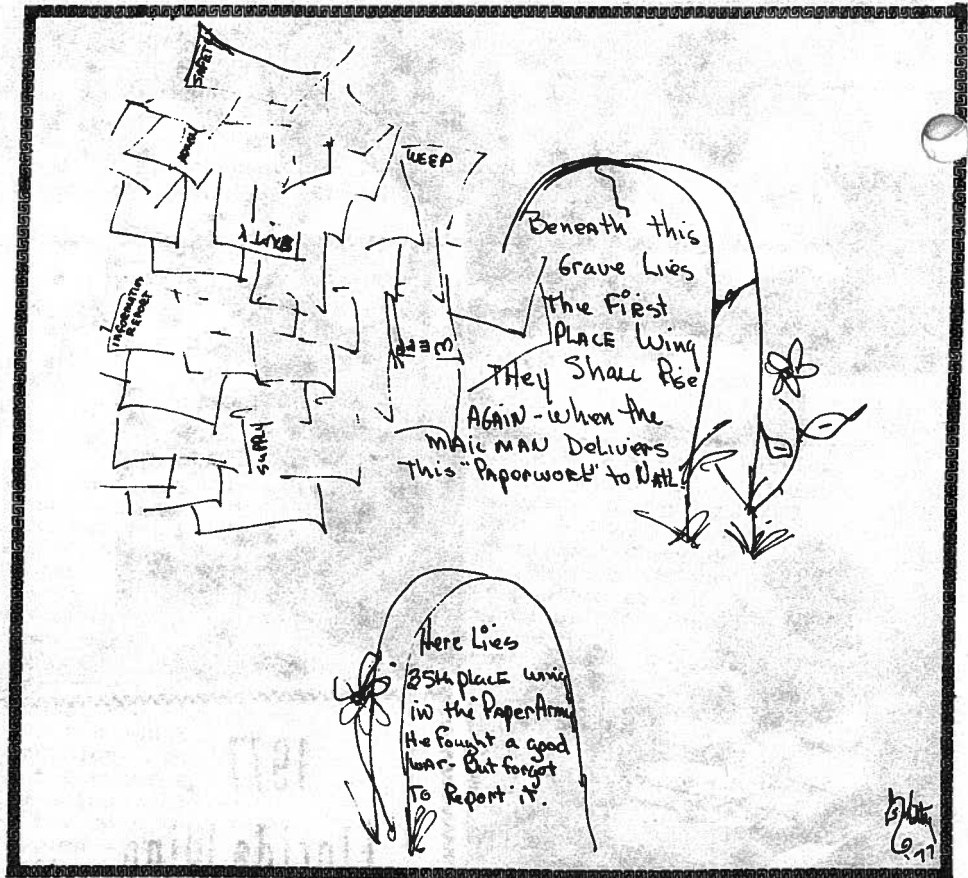 SAFETY
WEEP
INFORMATION
REPORT
WEEP
SUPPLY
Beneath this
Grave Lies
The First
PLACE Wing
THey Shall Rise
AGAIN - When the
MAIL MAN Delivers
This "Paperwork" to NATL!
Here Lies
35th place wing
in the "Paper Army"
He Fought a good
war - But forgot
To Report it.
'77